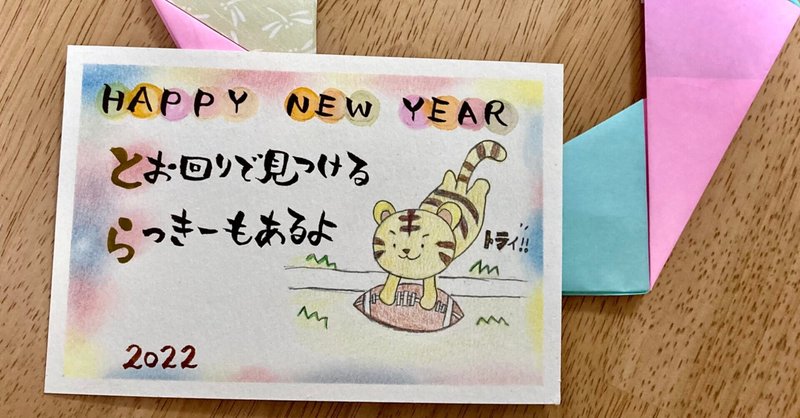 HAPPY NEW YEAR
とお回りで見つける
らっきーもあるよ
トライ!!
2022